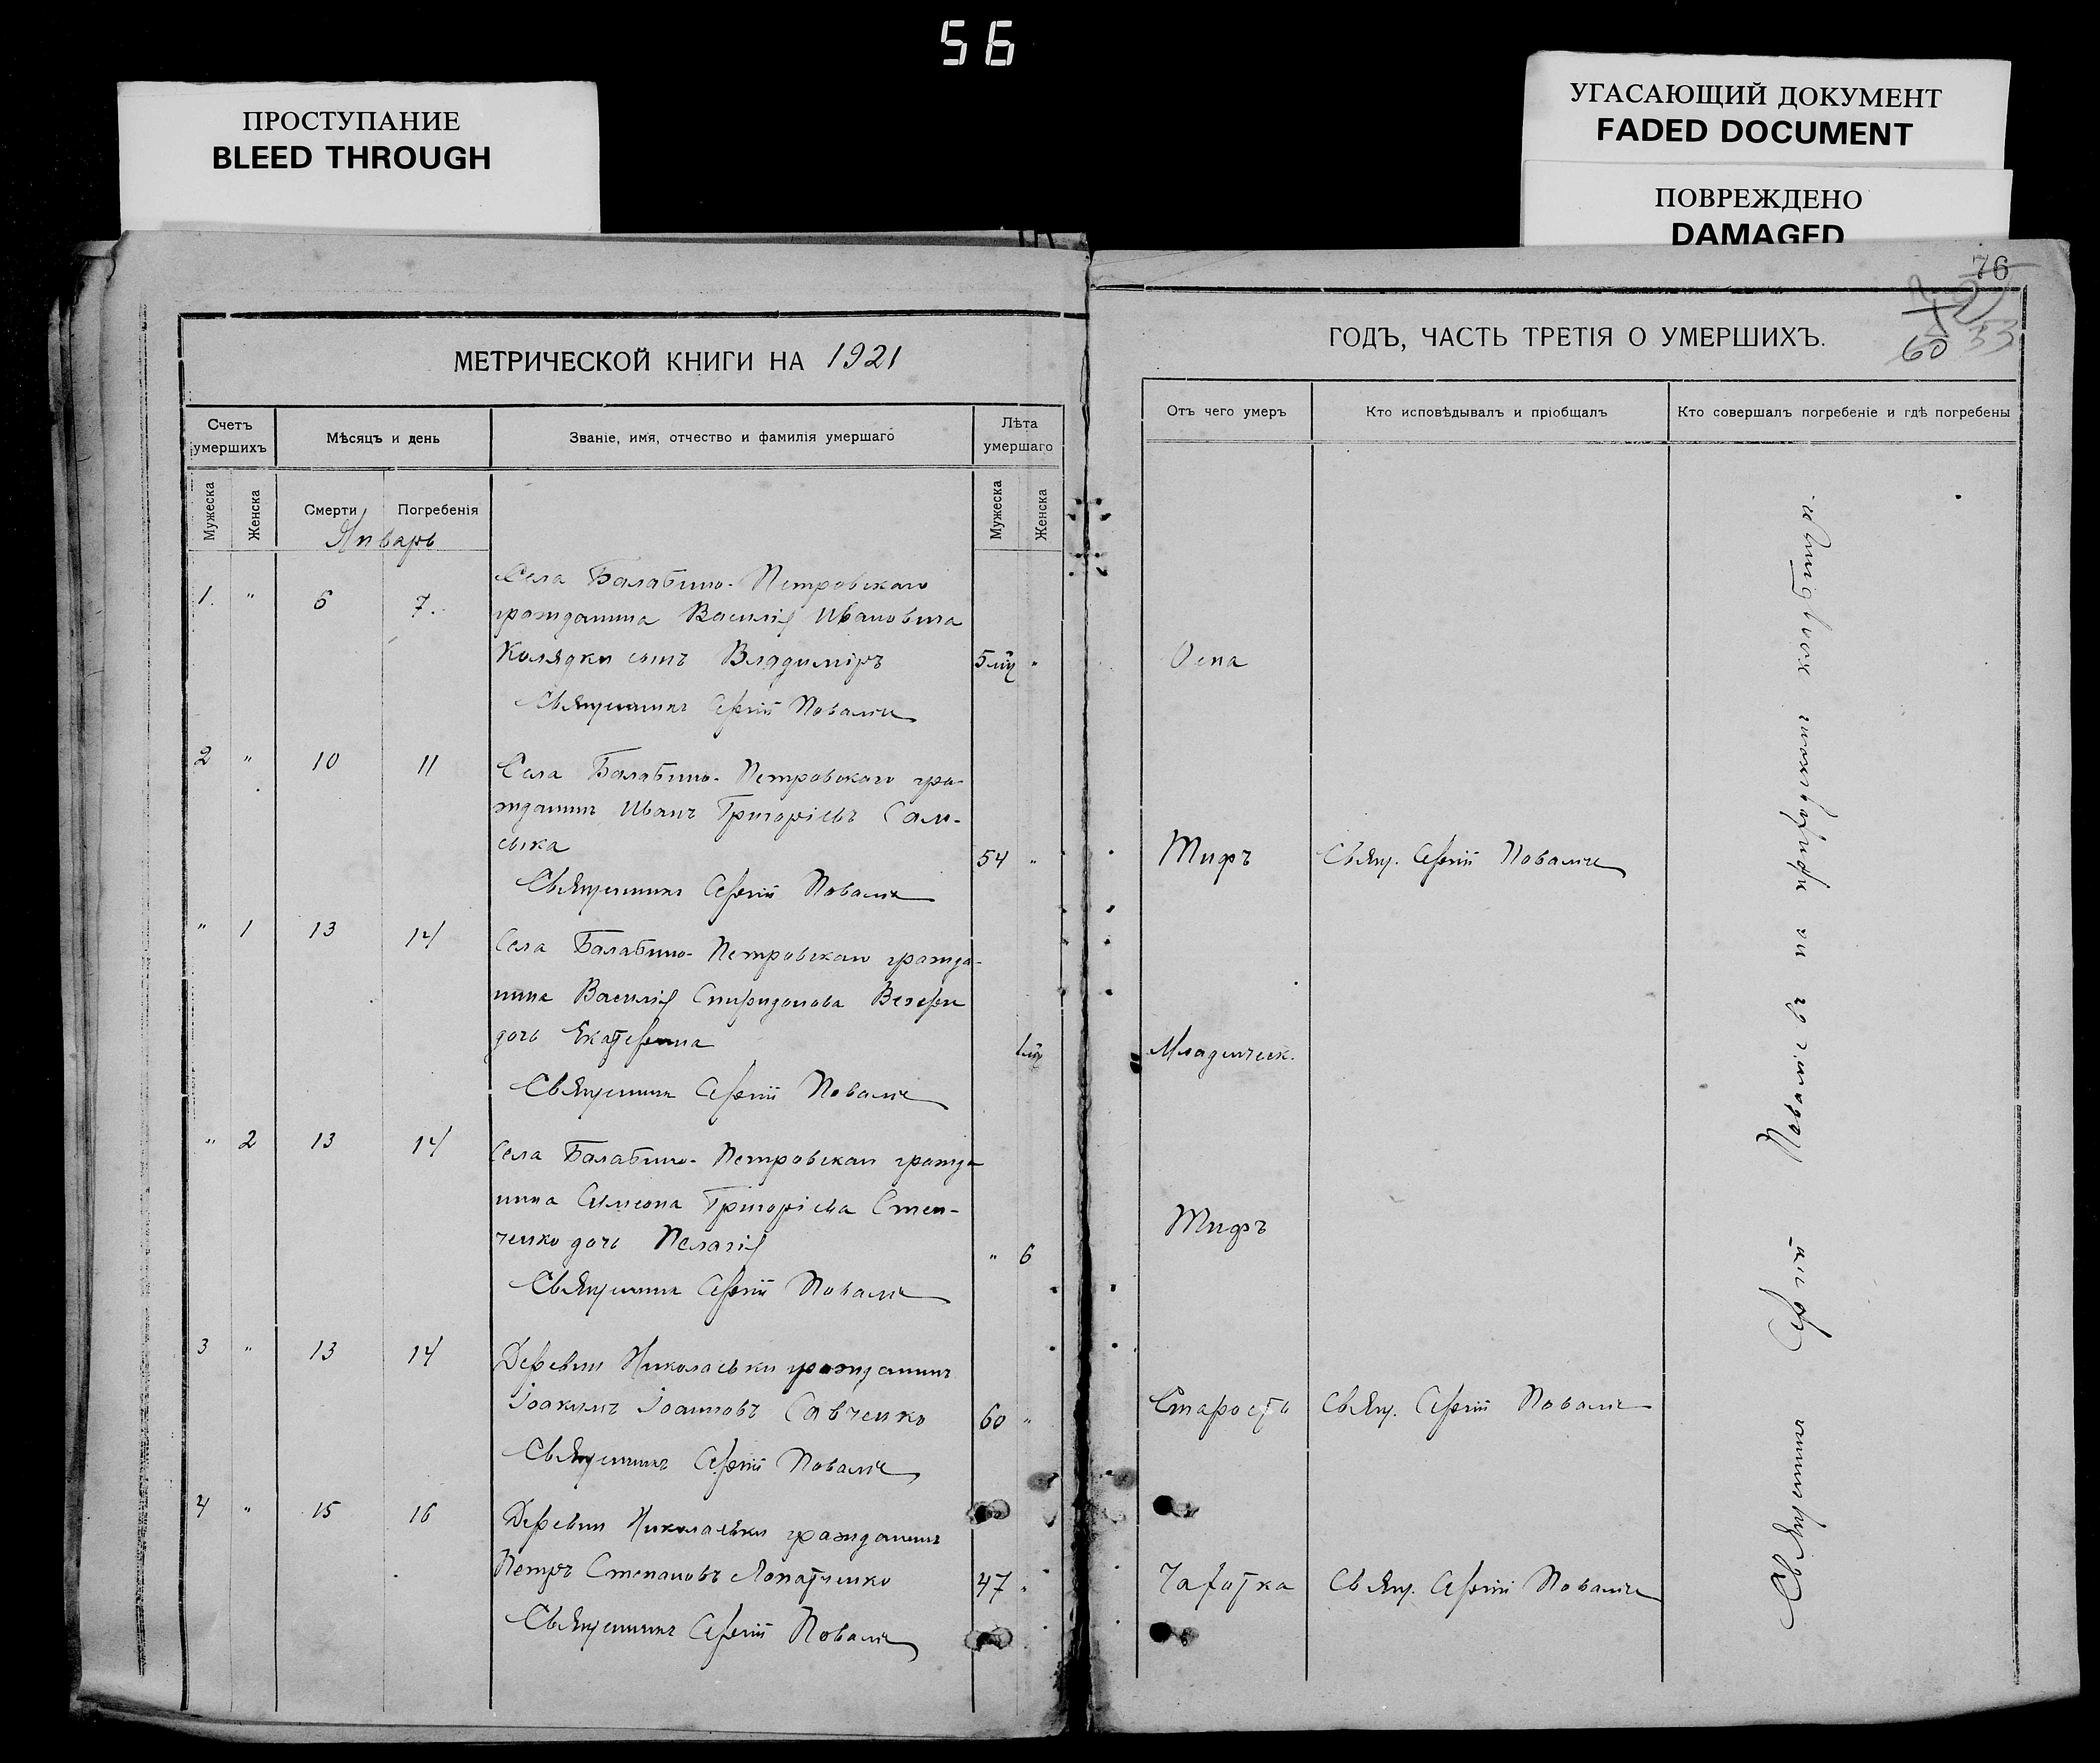 56
ПРОСТУПАНИЕ
BLEED THROUGH
УГАСАЮЩИЙ ДОКУМЕНТ
FADED DOCUMENT
ПОВРЕЖДЕНО
DAMAGED
76
60 53
МЕТРИЧЕСКОЙ КНИГИ НА 1921
Счетъ умершихъ
Мѣсяцъ и день
Званіе, имя, отчество и фамилія умершаго
Лѣта умершаго
Мужеска
Женска
Смерти
Погребенія
Мужеска
Женска
Январь
Села Балабино-Петровскаго
1. " 6 7.
гражданина Василія Ивановича
Колядки сынъ Владиміръ 5 "
Священникъ Сергій
2 " 10 11
Села Балабино-Петровскаго гра-
жданинъ Иванъ Григорієвъ Сам-
сыка 54 "
Священникъ Сергій
" 1 13 14
Села Балабино-Петровскаго гражда-
нина Василія Спиридонова Вечери
дочь Екатерина
Священникъ Сергій
" 2 13 14
Села Балабино-Петровскаго гражда
нина Симеона Григоріева Степ-
ченко дочь Пелагія " 6
Священникъ Сергій
3 " 13 14
Деревни Николаевки гражданинъ
Іоакимъ Іоанновъ Савченко 60 "
Священникъ Сергій
4 " 15 16
Деревни Николаевки гражданинъ
Петръ Степановъ Лопатченко 47 "
Священникъ Сергій
ГОДЪ, ЧАСТЬ ТРЕТІЯ О УМЕРШИХЪ.
Отъ чего умеръ
Кто исповѣдывалъ и пріобщалъ
Кто совершалъ погребеніе и гдѣ погребены
Оспа
Тифъ Свящ. Сергій
Младенческ.
Тифъ
Старость Свящ. Сергій
Чахотка Свящ. Сергій
Священникъ Сергій на приходскомъ кладбищѣ.